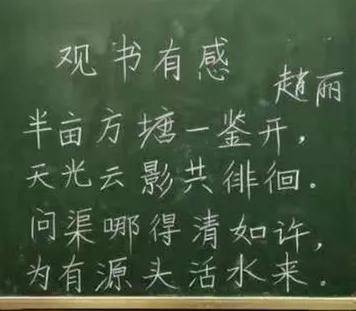 观书有感
趙丽
半亩方塘一鉴开，
天光云影共徘徊。
问渠哪得清如许，
为有源头活水来。